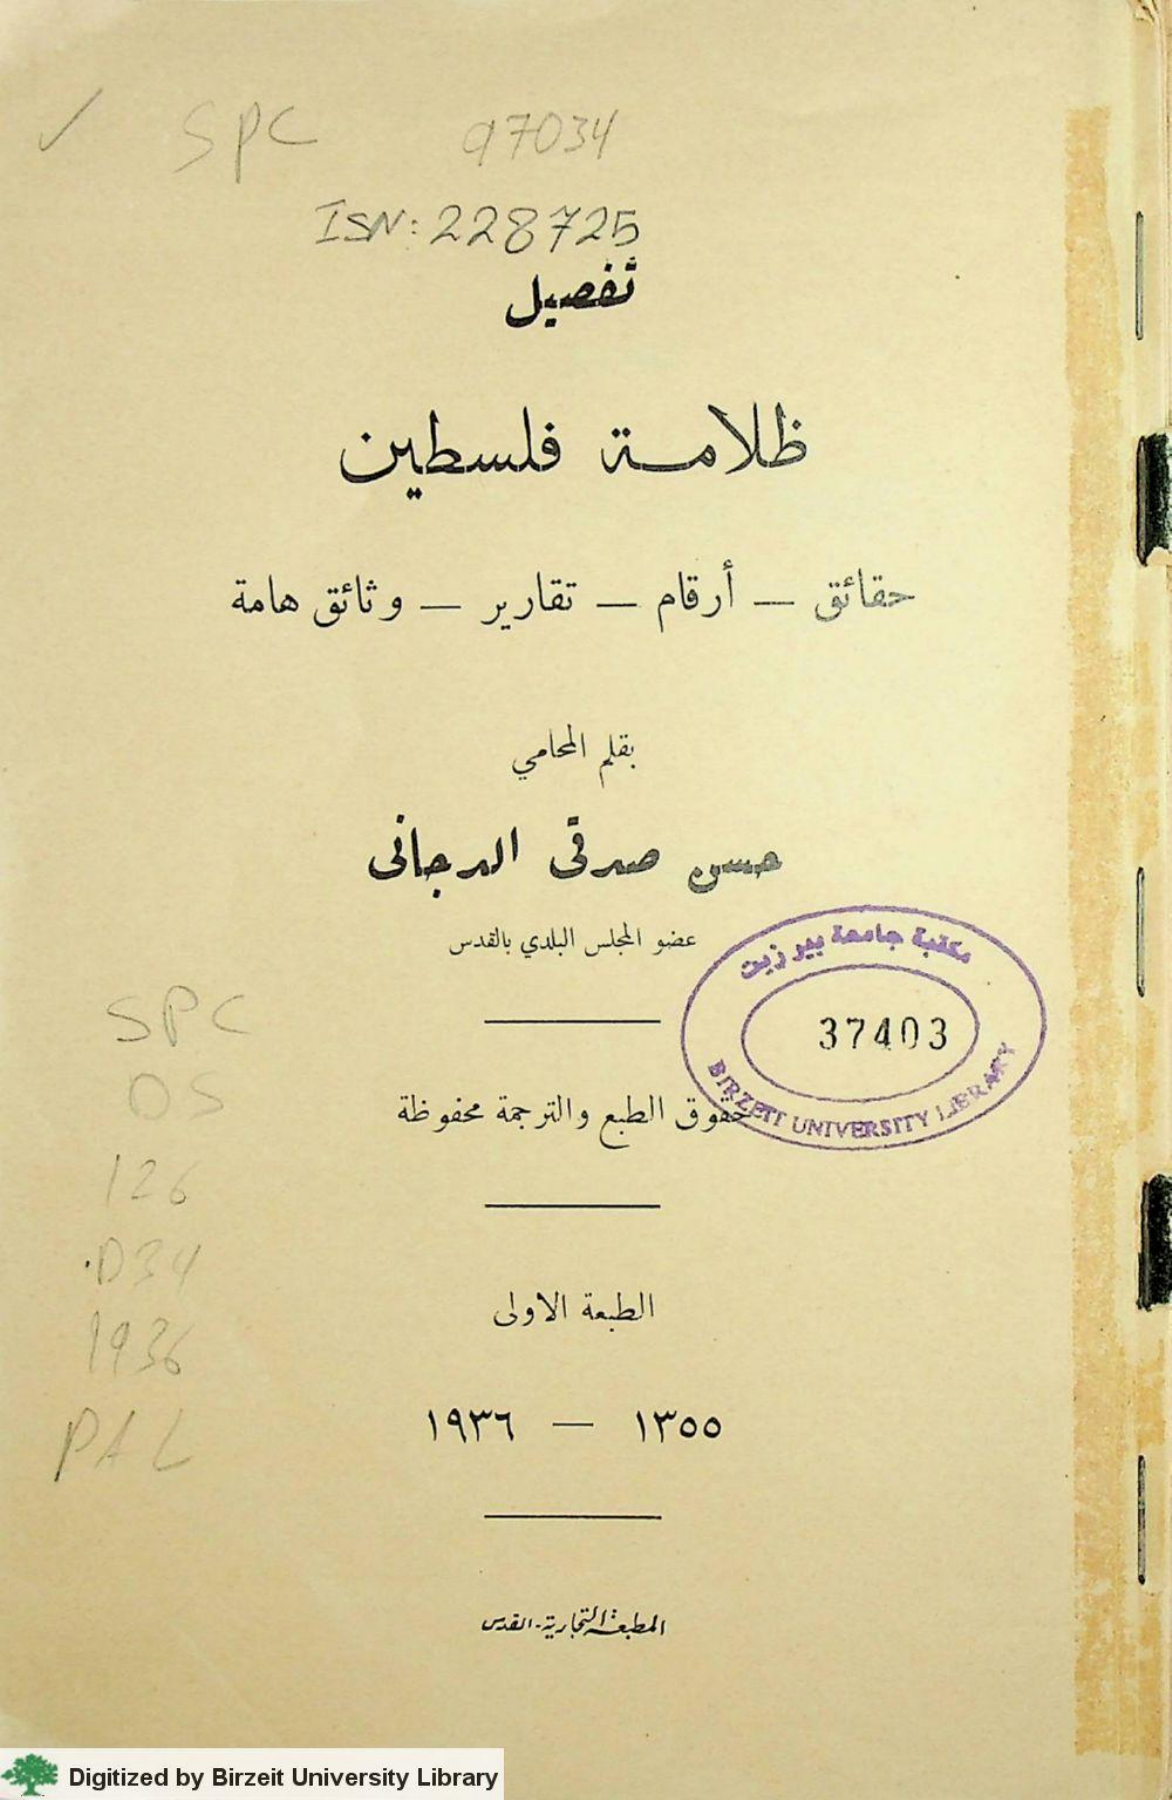 ✓ SPC 97034
ISN: 228725
تفصيل
ظلامة فلسطين
حقائق — أرقام — تقارير — وثائق هامة
بقلم المحامي
حسن صدقى الدجانى
عضو المجلس البلدي بالقدس
مكتبة جامعة بير زيت
37403
BIRZEIT UNIVERSITY LIBRARY
حقوق الطبع والترجمة محفوظة
الطبعة الاولى
١٣٥٥ — ١٩٣٦
المطبعة التجارية - القدس
SPC
DS
126
.D34
1936
PAL
Digitized by Birzeit University Library